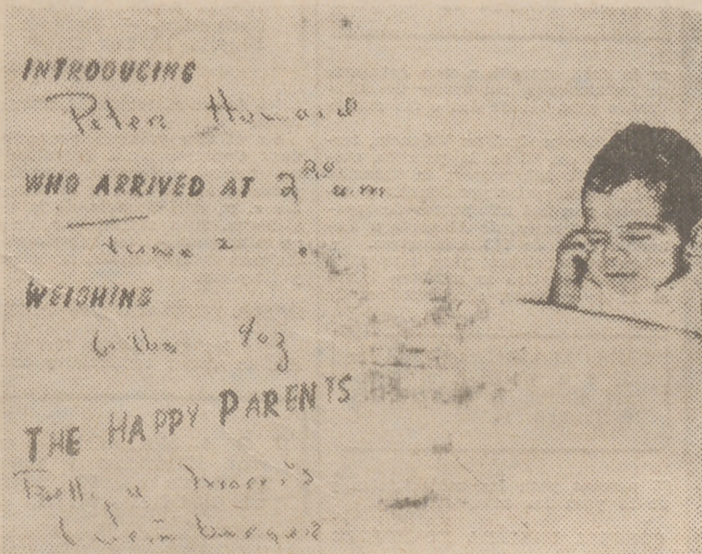 INTRODUCING
Peter Howard
WHO ARRIVED AT 2 20 am
June 2
WEIGHING
6 lbs 9oz
THE HAPPY PARENTS
Morris